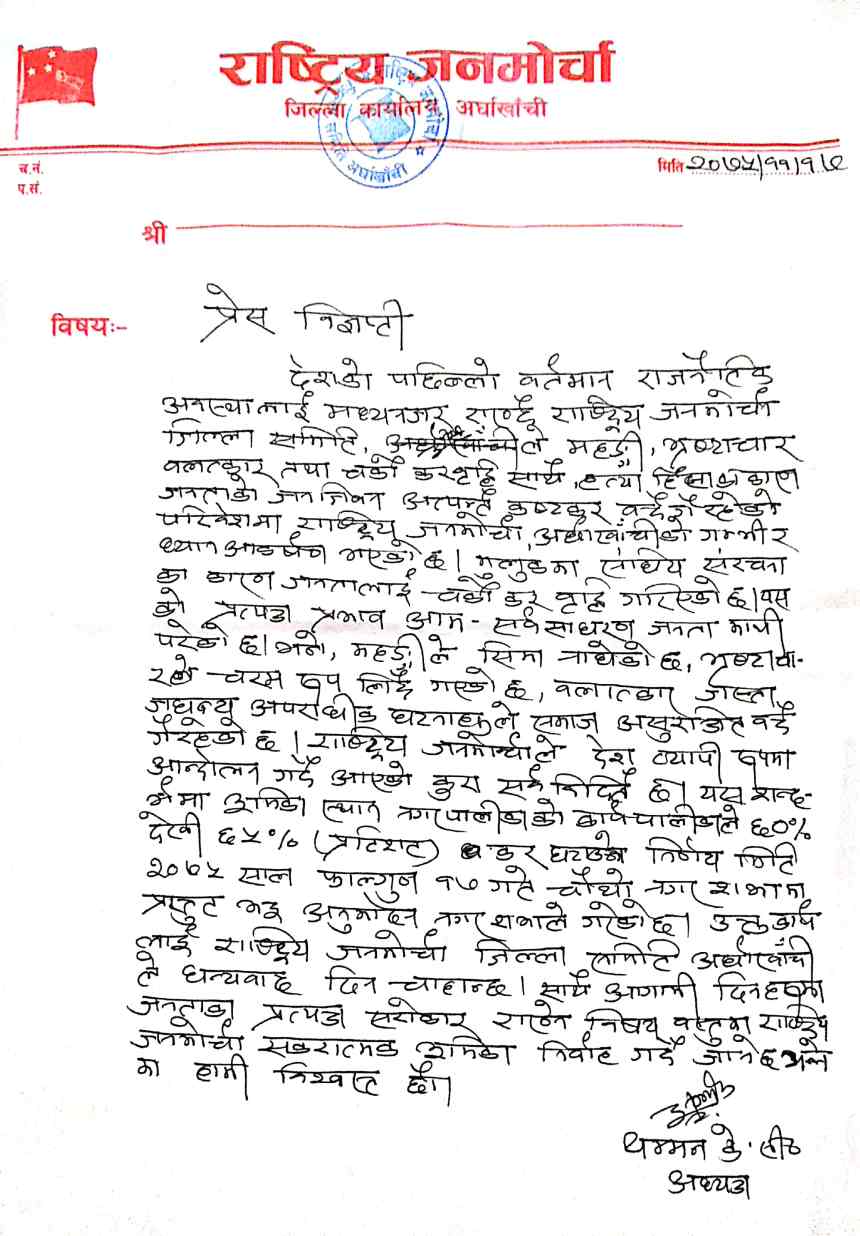 राष्ट्रिय जनमोर्चा
जिल्ला कार्यालय अर्घाखाँची
च.नं.
प.सं.
मिति २०७५/११/१७
श्री
विषयः-
प्रेस विज्ञप्ती
देशको पाछिल्लो वर्तमान राजनैतिक
अवस्थालाई मध्यनजर राख्दै राष्ट्रिय जनमोर्चा
जिल्ला समिति, महङ्गी, भ्रष्टाचार
वलत्कार तथा चर्को करवृद्दि साथै, हत्या हिंसाका कारण
जनताको जनजिवन अत्यन्तै कष्टकर वन्दै गै रहेको
परिवेशमा राष्ट्रिय जनमोर्चा, अर्घाखाँचीको गम्भीर
ध्यान आकर्षण भएको छ। मुलुकमा संघिय संरचना
का कारण जनतालाई चर्को कर वृद्दि गरिएको छ। यस
को प्रत्यक्ष प्रभाव आम - सर्वसाधरण जनता माथी
परेको छ। भने, महङ्गीले सिमा नाघेको छ, भ्रष्टाचा-
रले चरम रुप लिदै गएको छ, वलात्कार जस्ता
जघन्य अपराधीक घटनाहरुले समाज असुरक्षित वन्दै
गैरहेको छ। राष्ट्रिय जनमोर्चाले देश व्यापी रुपमा
आन्दोलन गर्दै आएको कुरा सर्व विदितै छ। यस सन्द-
र्भमा भुमिका स्थान नगरपालीकाको कार्यपालीकाले ६०%
देखी ६५% (प्रतिशत) कर घटाउने निर्णय मिति
२०७५ साल फाल्गुन १७ गते चौथो नगर सभामा
प्रस्तुत भइ अनुमोदन नगर सभाले गरेको छ। उक्त कार्य
लाई राष्ट्रिय जनमोर्चा जिल्ला समिति अर्घाखाँची
ले धन्यवाद दिन चाहान्छ। साथै आगामी दिनहरुमा
जनताका प्रत्यक्ष सरोकार राख्ने विषय वस्तुमा राष्ट्रिय
जनमोर्चा सकरात्मक भुमिका निर्वाह गर्दै जाने छ भन्ने
मा हामी विश्वस्त छौं।
थम्मन के.सी
अध्यक्ष